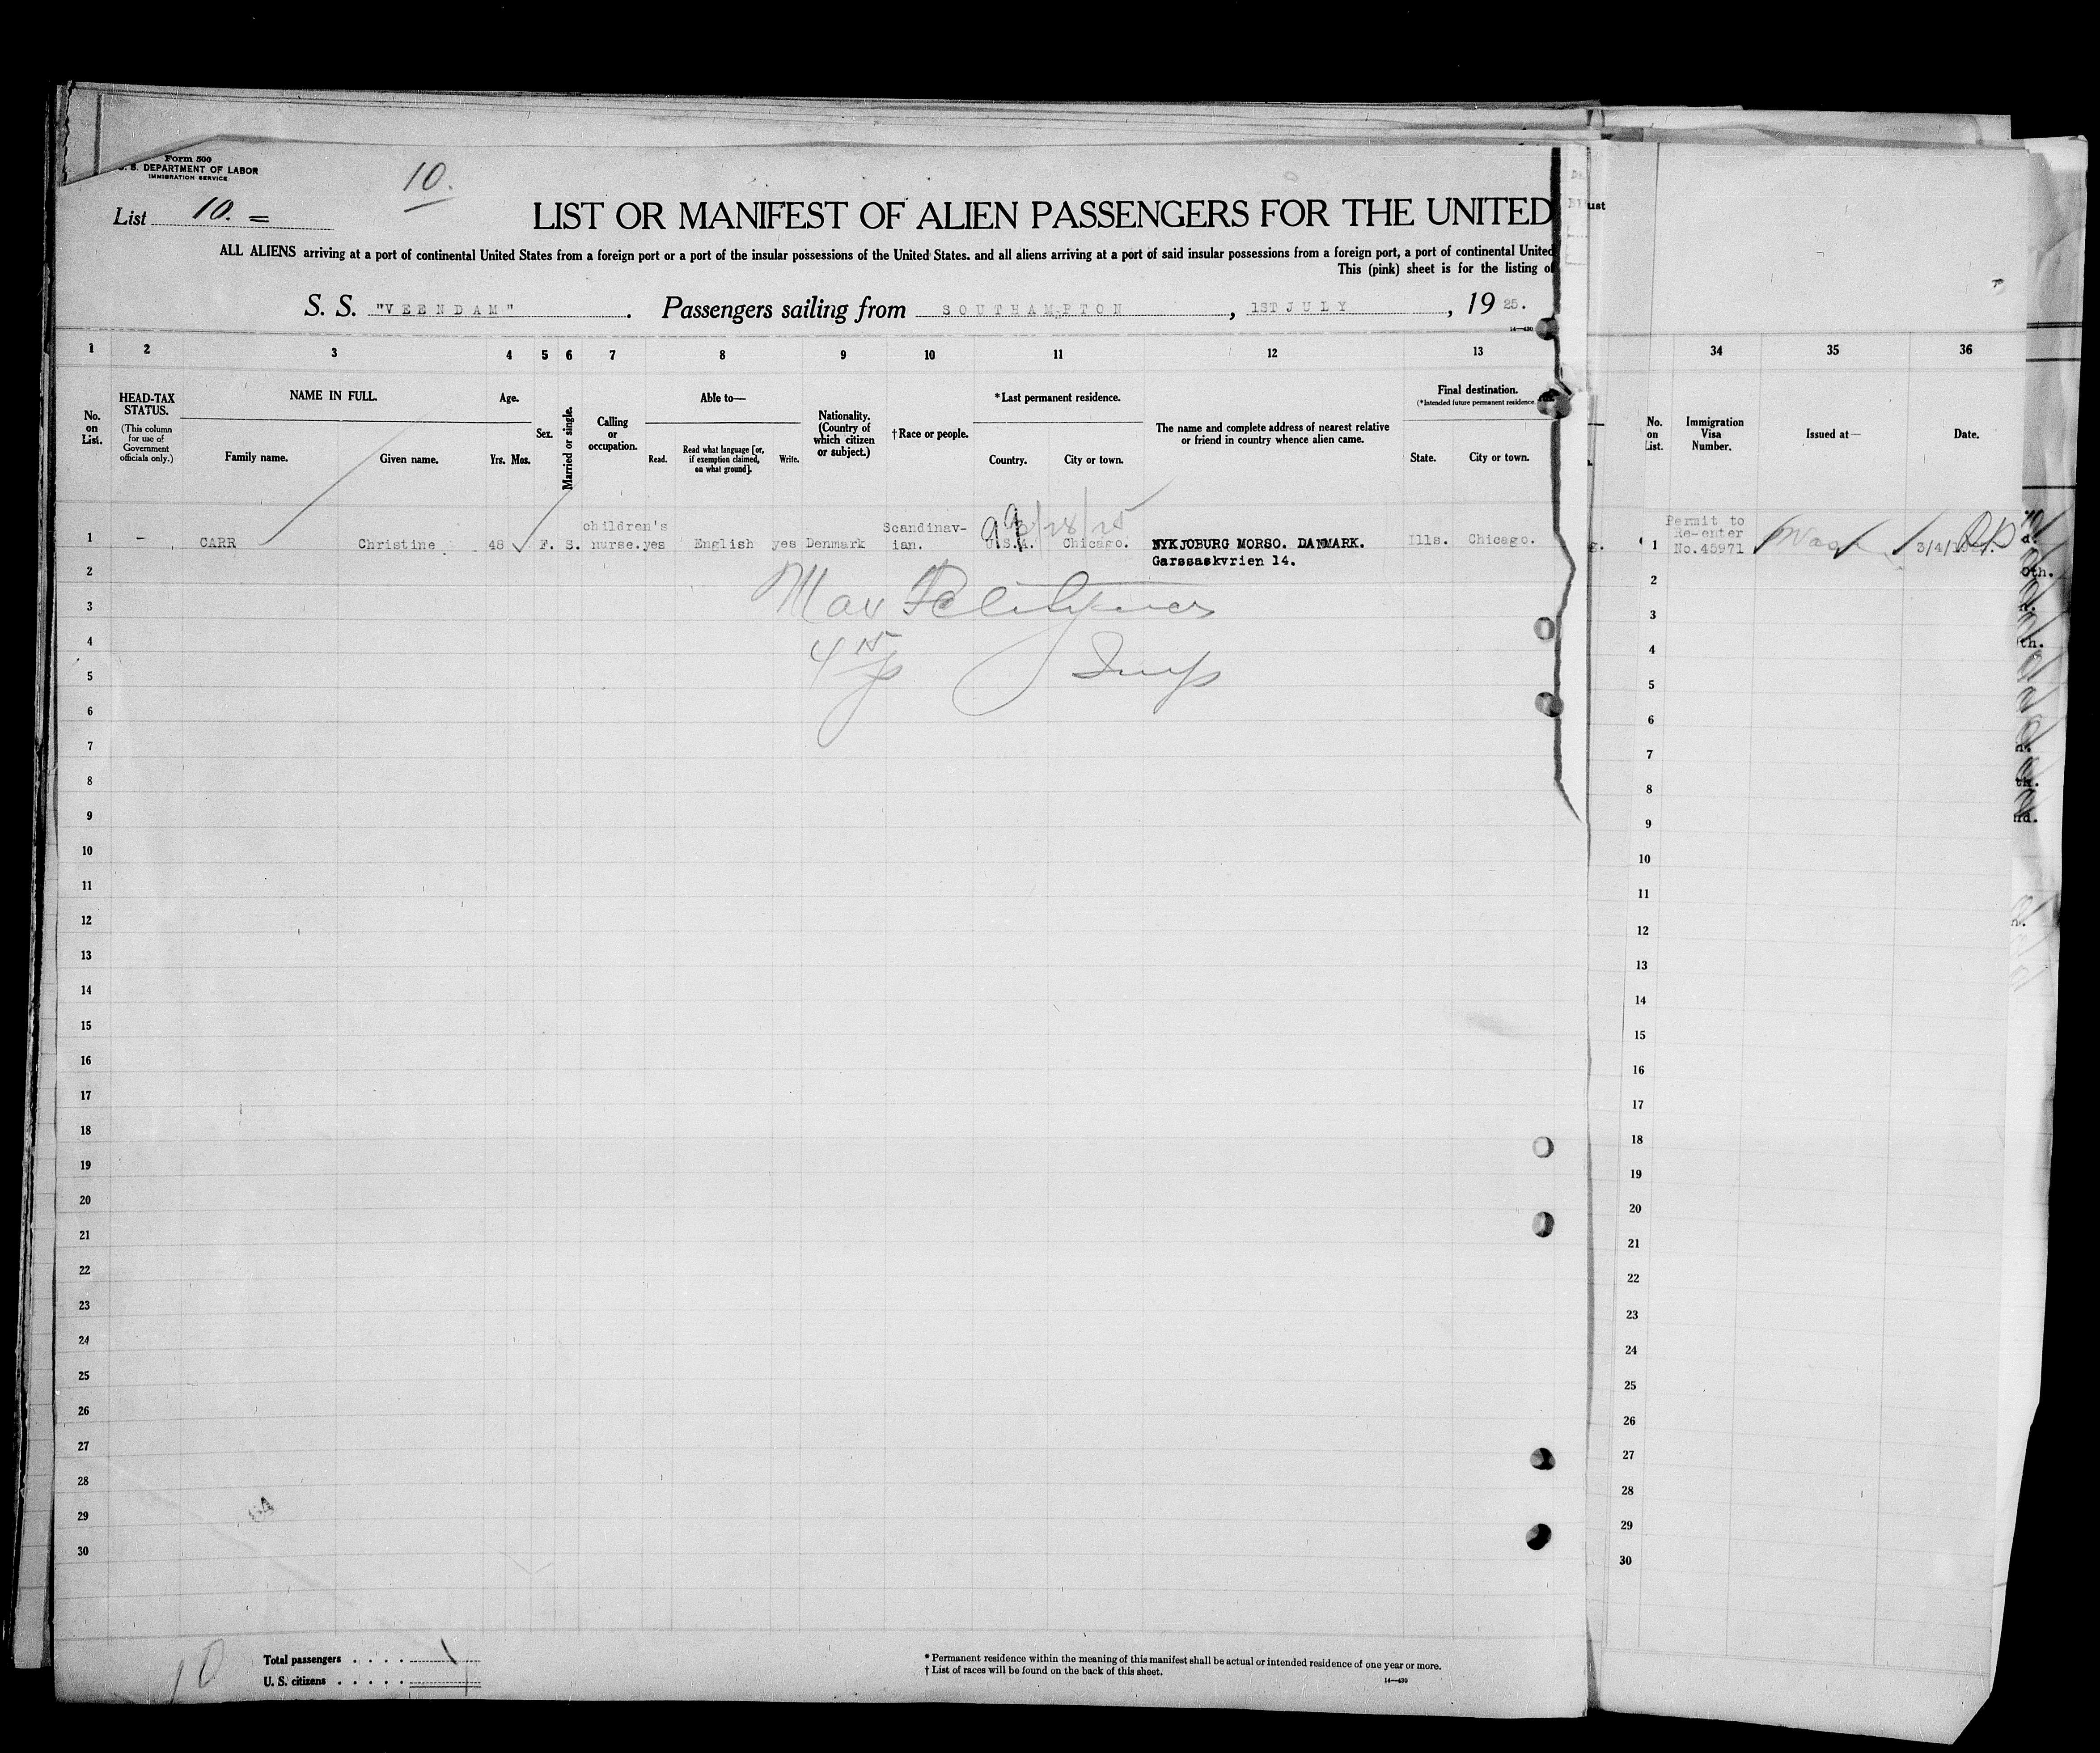 Form 500
U. S. DEPARTMENT OF LABOR
IMMIGRATION SERVICE
10.
List 10. =
LIST OR MANIFEST OF ALIEN PASSENGERS FOR THE UNITED
ALL ALIENS arriving at a port of continental United States from a foreign port or a port of the insular possessions of the United States. and all aliens arriving at a port of said insular possessions from a foreign port, a port of continental United
This (pink) sheet is for the listing of
S. S. "VEENDAM". Passengers sailing from SOUTHAMPTON, 1ST JULY, 19 25.
14—430
1 2 3 4 5 6 7 8 9 10 11 12 13
No. on List.
HEAD-TAX STATUS.
(This column for use of Government officials only.)
NAME IN FULL.
Family name. Given name.
Age.
Yrs. Mos.
Sex.
Married or single.
Calling or occupation.
Able to—
Read. Read what language [or, if exemption claimed, on what ground]. Write.
Nationality. (Country of which citizen or subject.)
†Race or people.
*Last permanent residence.
Country. City or town.
The name and complete address of nearest relative or friend in country whence alien came.
Final destination.
(*Intended future permanent residence.
State. City or town.
1 – CARR Christine 48 F. S. children's nurse. yes English yes Denmark Scandinav-ian. U.S.A. Chicago. NYKJOBURG MORSO. DANMARK. Ills. Chicago.
Garssaskvrien 14.
2
3
4
5
6
7
8
9
10
11
12
13
14
15
16
17
18
19
20
21
22
23
24
25
26
27
28
29
30
10
Total passengers . . . .
U. S. citizens . . . . .
* Permanent residence within the meaning of this manifest shall be actual or intended residence of one year or more.
† List of races will be found on the back of this sheet.
14—430
ust
34 35 36
No. on List.
Immigration Visa Number.
Issued at—
Date.
1 Permit to Re-enter No.45971 Wash
2
3
4
5
6
7
8
9
10
11
12
13
14
15
16
17
18
19
20
21
22
23
24
25
26
27
28
29
30